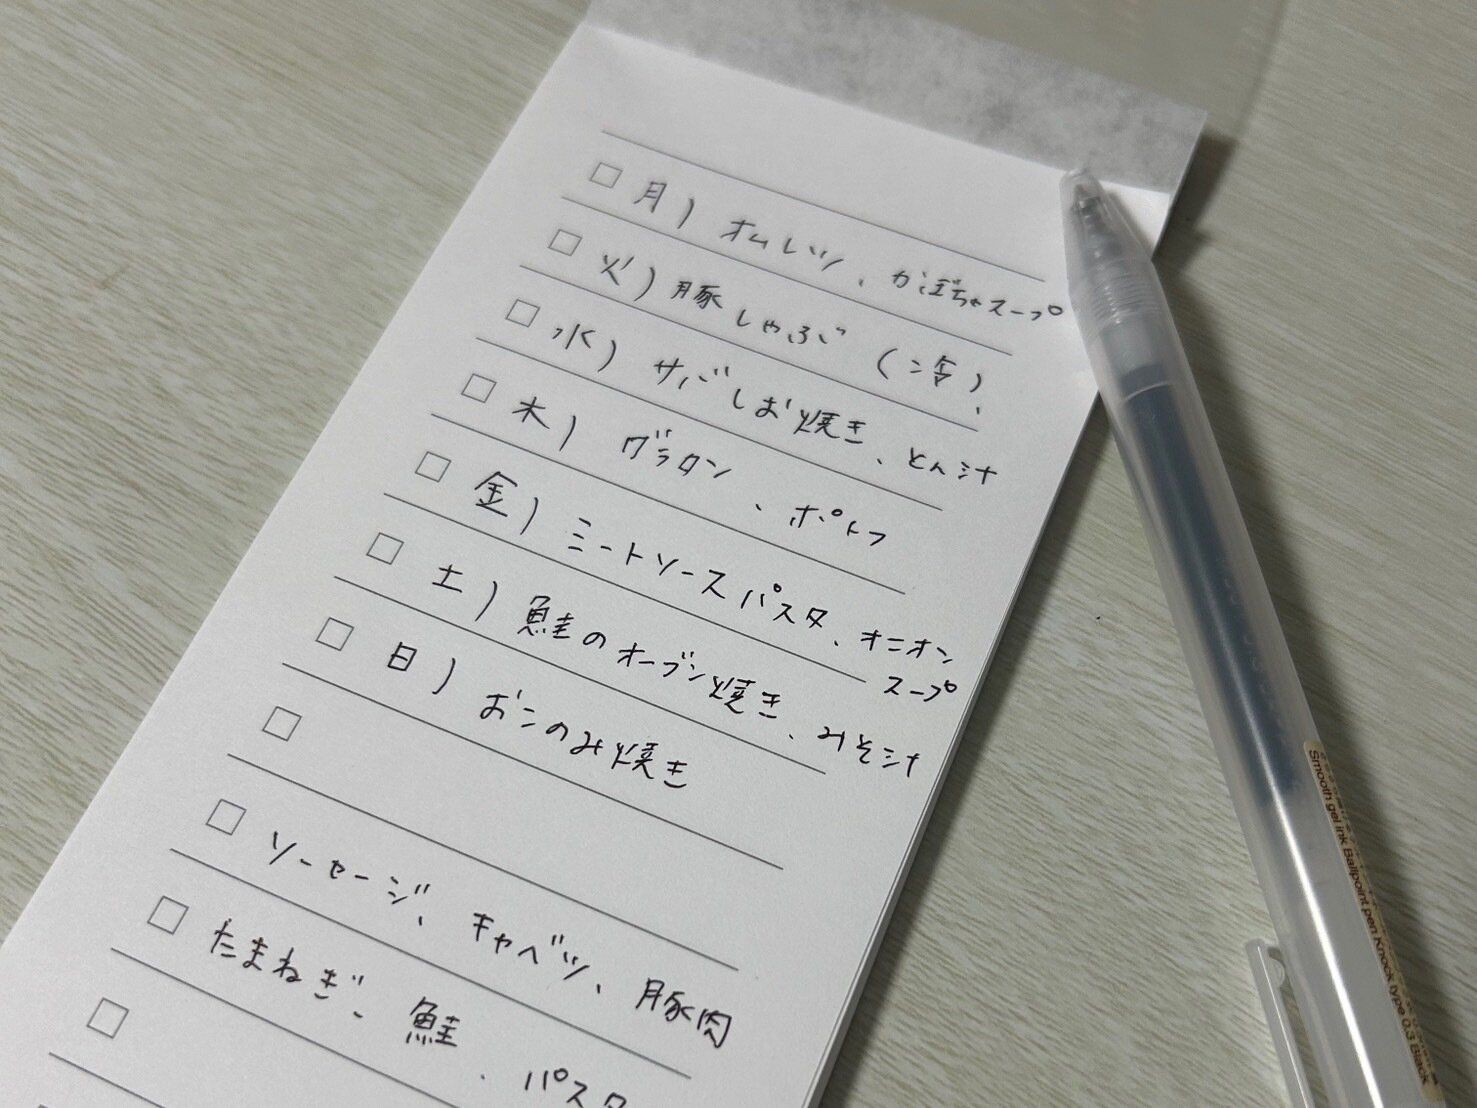 月) オムレツ、かぼちゃスープ
火) 豚しゃぶ (冷)、
水) サバしお焼き、とん汁
木) グラタン、ポトフ
金) ミートソースパスタ、オニオン
スープ
土) 鮭のオーブン焼き、みそ汁
日) おこのみ焼き
ソーセージ、キャベツ、豚肉
たまねぎ、鮭、パスタ
Smooth gel ink Ballpoint pen Knock type 0.3 Black